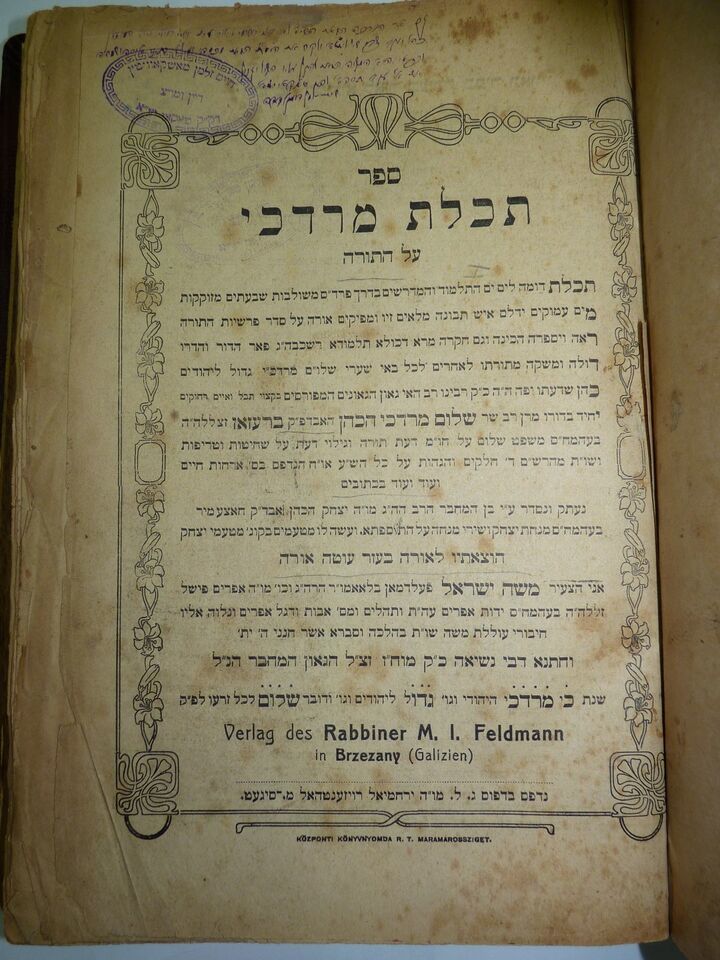 חיים זלמן מאשקאוויטץ
ספר
תכלת מרדכי
על התורה
תכלת דומה לים ים התלמוד והמדרשים בדרך פרד״ם משולבות שבעתים מזוקקות
מים עמוקים ידלם איש תבונה מלאים זיו ומפיקים אורה על סדר פרשיות התורה
ראה ויספרה הכינה וגם חקרה מרא דכולא תלמודא רשכבה״ג פאר הדור והדרו
דולה ומשקה מתורתו לאחרים לכל באי שערי שלו״ם מרדכ״י גדול ליהודים
כהן שדעתו יפה ה״ה כ״ק רבינו רב האי גאון הגאונים המפורסם בקצוי תבל ואיים רחוקים
יחיד בדורו מרן רב שר שלום מרדכי הכהן האבדפ״ק ברעזאן זצללה״ה
בעהמח״ס משפט שלום על חו״מ דעת תורה וגילוי דעת על שחיטות וטריפות
ושו״ת מהרש״ם ד׳ חלקים והגהות על כל הש״ע או״ח הנדפס בס׳ ארחות חיים
ועוד ועוד בכתובים
נעתק ונסדר ע״י בן המחבר הרב הה״ג מו״ה יצחק הכהן אבד״ק חאצעמיר
בעהמח״ס מנחת יצחק ושירי מנחה על התוספתא. ועשה לו מטעמים בקונ׳ מטעמי יצחק
הוצאתיו לאורה בעזר עוטה אורה
אני הצעיר משה ישראל פעלדמאן בלאאמו״ר הרה״ג וכו׳ מו״ה אפרים פישל
זללה״ה בעהמח״ס ידות אפרים עה״ת ותהלים ומס׳ אבות ודגל אפרים ונלוה אליו
חיבורי עוללת משה שו״ת בהלכה וסברא אשר חנני ה׳ ית׳
וחתנא דבי נשיאה כ״ק מוח״ז זצ״ל הגאון המחבר הנ״ל
שנת כי מרדכי היהודי וגו׳ גדול ליהודים וגו׳ ודובר שלום לכל זרעו לפ״ק
Verlag des Rabbiner M. I. Feldmann
in Brzezany (Galizien)
נדפס בדפוס ג. ל. מו״ה ירחמיאל רויזענטהאל מ.־סיגעט.
KÖZPONTI KÖNYVNYOMDA R. T. MARAMAROSSZIGET.